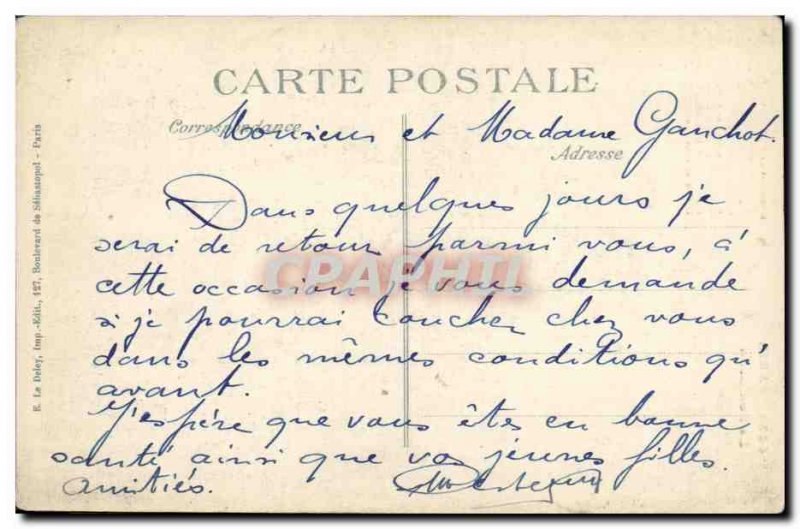 CARTE POSTALE
Correspondance
Monsieur et Madame Gauchot.
Adresse
Dans quelques jours je
serai de retour parmi vous, à
cette occasion je vous demande
si je pourrai coucher chez vous
dans les mêmes conditions qu'
avant.
J'espère que vous êtes en bonne
santé ainsi que vos jeunes filles.
Amitiés.
E. Le Deley, Imp.-Edit., 127, Boulevard de Sébastopol - Paris
CPAPHIL